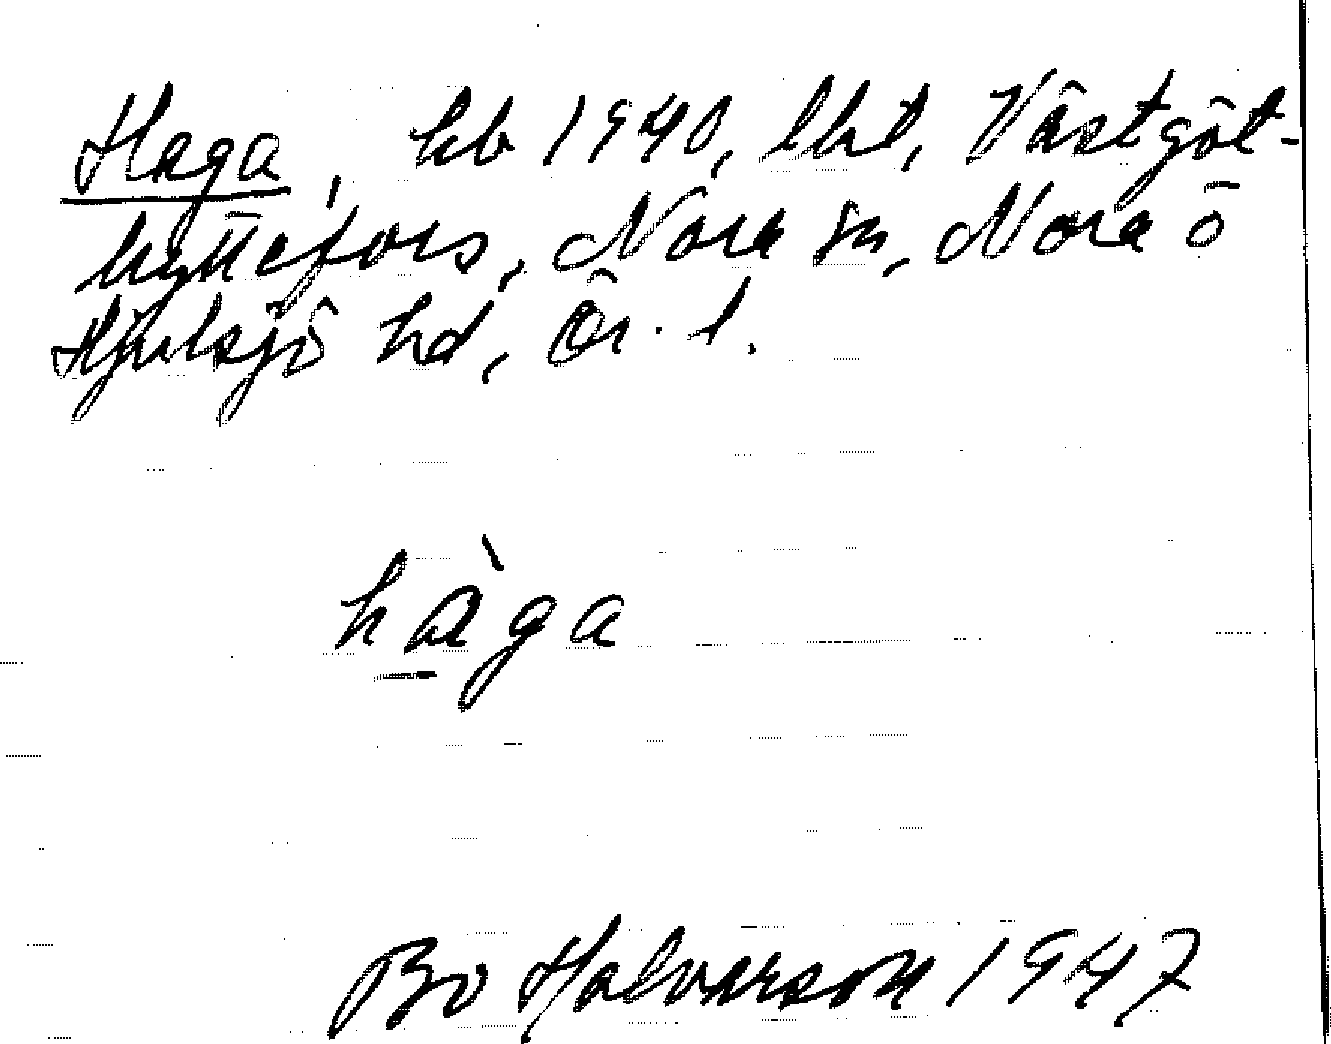 Haga, kb 1940, lht, Västgöt-
hyttefors, Nora sn, Nora o
Hjulsjö hd, Ör. l.
hàga
Bo Halvarson 1947